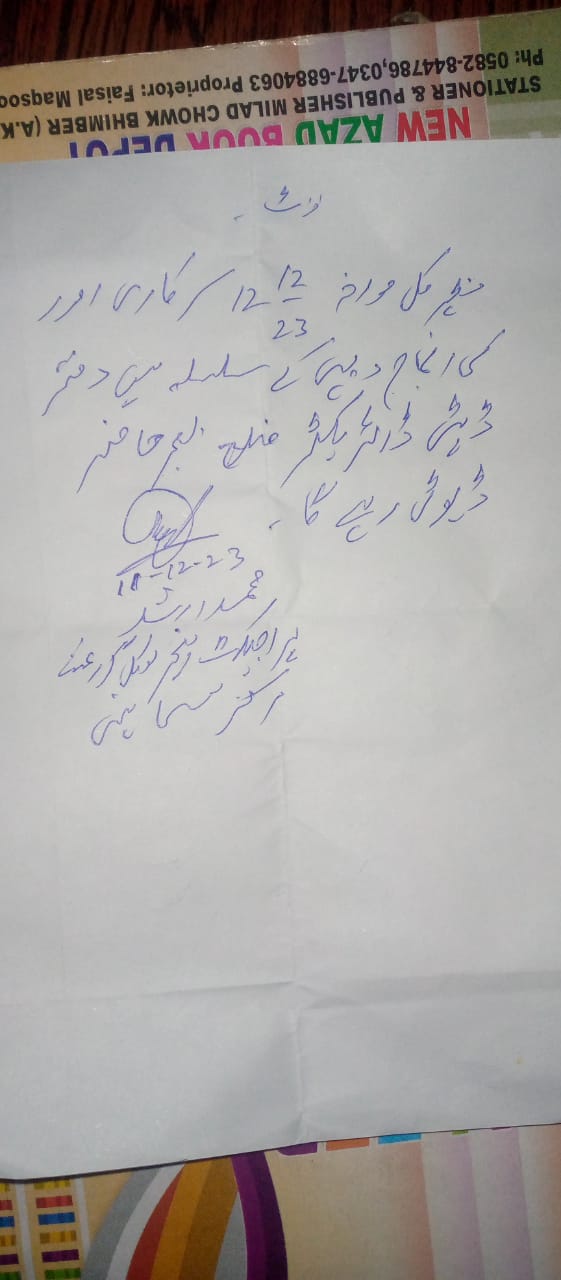 NEW AZAD BOOK DEPOT
STATIONER & PUBLISHER MILAD CHOWK BHIMBER (A.K
Ph: 0582-844786,0347-6884063 Proprietor: Faisal Maqsoo
نوٹ۔
کل مورخہ 12 12/23 سرکاری امور
کی انجام دہی کے سلسلہ میں دفتر
ڈپٹی ڈائریکٹر ضلع بھمبر حاضر
ڈیوٹی رہے گا۔
11-12-23
محمد ارشد
پراجیکٹ منیجر لوکل گورنمنٹ
مرکز